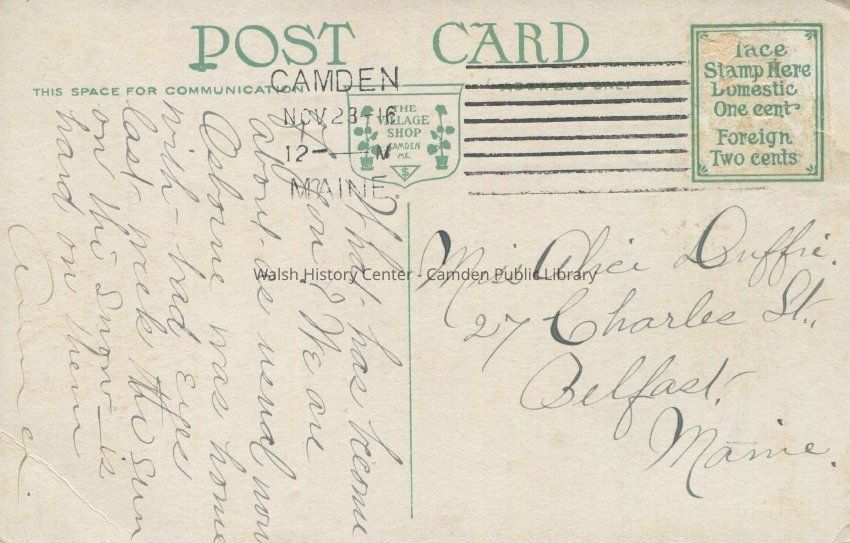 POST CARD
THIS SPACE FOR COMMUNICATION
ADDRESS ONLY
CAMDEN
NOV 28-16
12- M
MAINE.
THE
VILLAGE
SHOP
CAMDEN
ME.
$
Place
Stamp Here
Domestic
One cent
Foreign
Two cents
What has become
of you? We are
about as usual now
Osborne was home
with bad eyes
last week the sun
on the snow is
hard on them
Walsh History Center - Camden Public Library
Miss Alice Duffie.
27 Charles St.,
Belfast,
Maine.